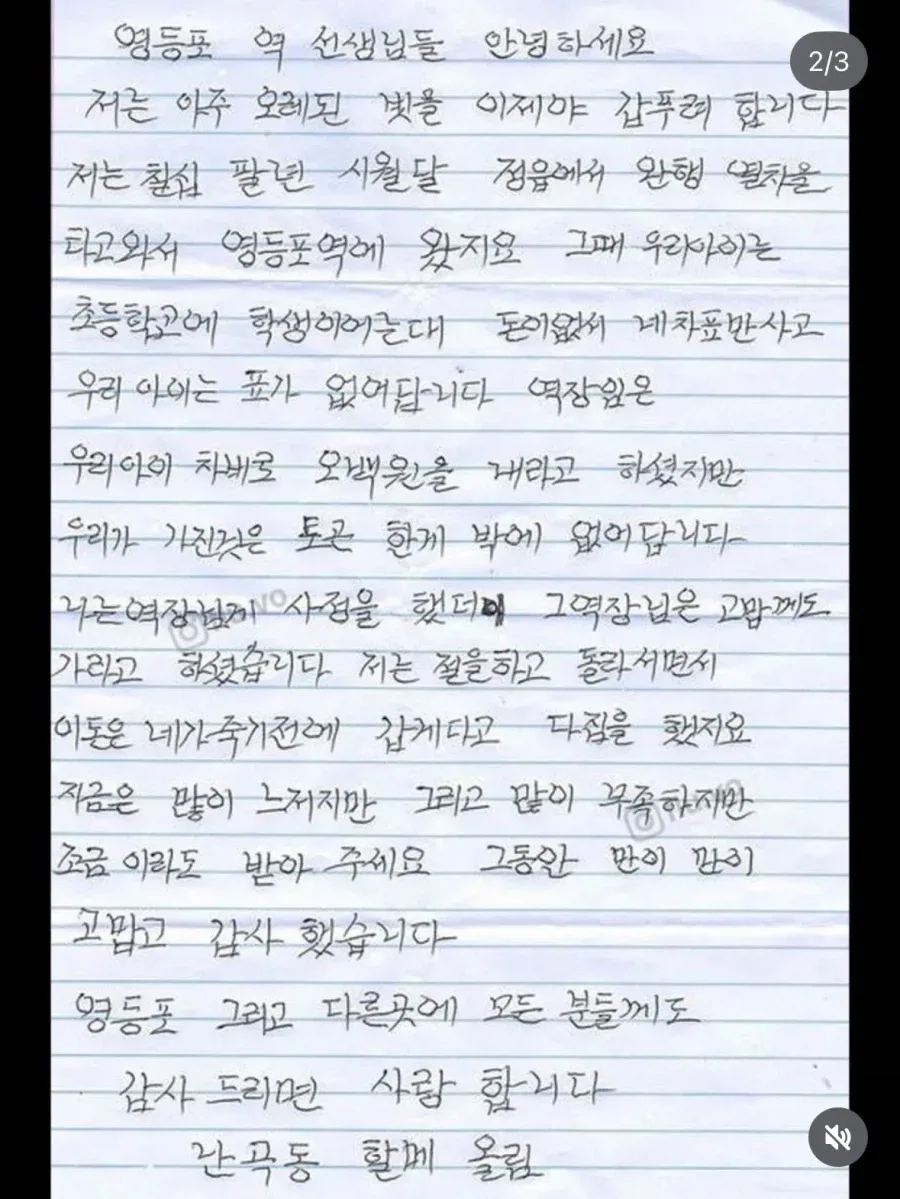 영등포 역 선생님들 안녕하세요
2/3
저는 아주 오레된 빚을 이제야 갑푸려 합니다
저는 칠십 팔년 시월달 정읍에서 완행 열차을
타고와서 영등포역에 왔지요 그때 우리아이는
초등학고에 학생이어는대 돈이없서 네차표만사고
우리 아이는 표가 없어답니다 역장임은
우리아이 차비로 오백원을 내라고 하셨지만
우리가 가진것은 토큰 한게 박에 없어답니다
나는역장님게 사정을 했더 그역장님은 고맙께도
가라고 하셨습니다 저는 절을하고 돌라서면서
이돈은 네가죽기전에 갑게다고 다짐을 했지요
지금은 많이 느저지만 그리고 많이 부족하지만
조금이라도 받아 주세요 그동안 만이 만이
고맙고 감사 했습니다
영등포 그리고 다른곳에 모든 분들께도
감사 드리면 사랑 합니다
난곡동 할메 올림